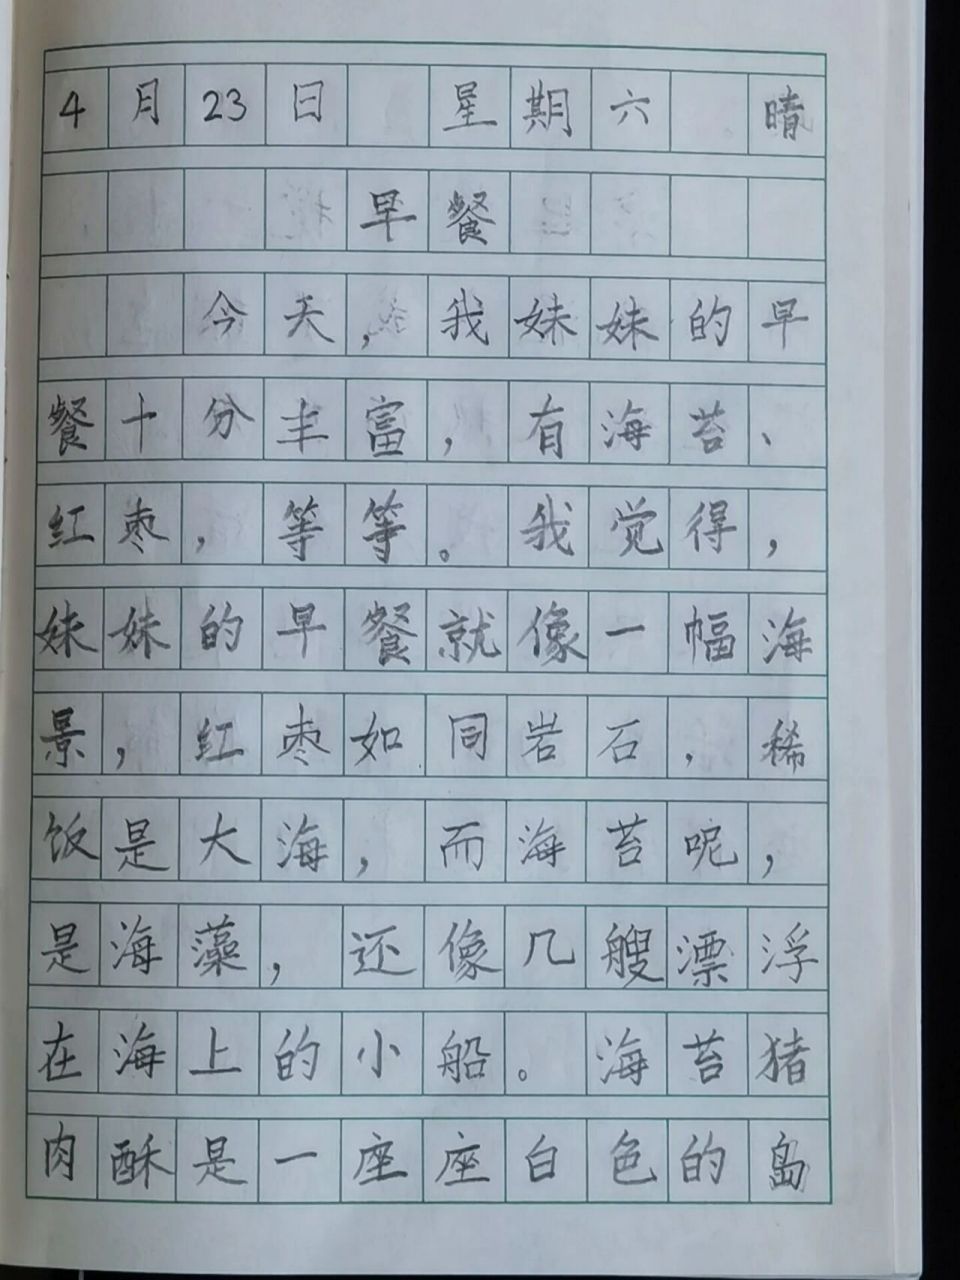 4月23日 星期六 晴
早餐
今天,我妹妹的早
餐十分丰富,有海苔、
红枣,等等。我觉得,
妹妹的早餐就像一幅海
景,红枣如同岩石,稀
饭是大海,而海苔呢,
是海藻,还像几艘漂浮
在海上的小船。海苔猪
肉酥是一座座白色的岛